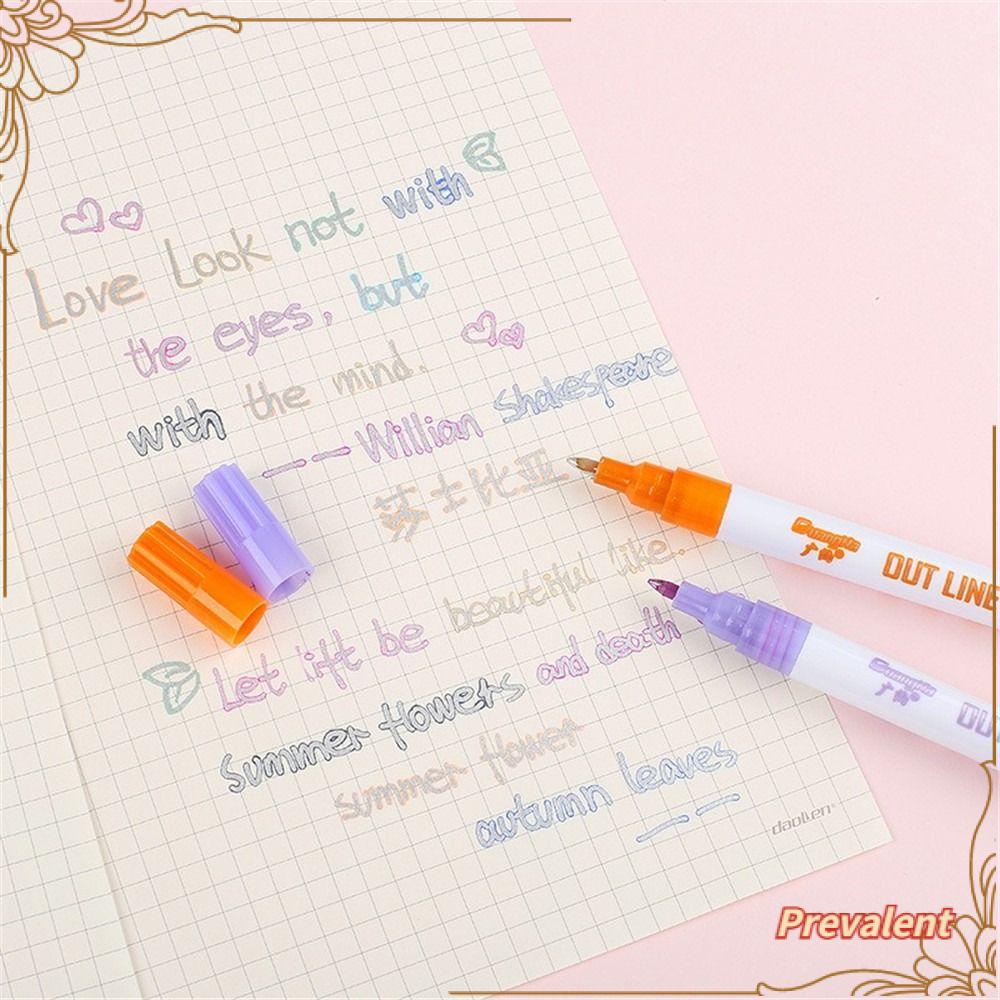 Love Look not with
the eyes, but
with the mind.
—— Willian Shakespeare
莎士比亚
Let lift be beautiful like..
summer flowers and death
summer flower
autumn leaves
daolen
Guangna
广纳
OUT LINE
Guangna
广纳
OU
Prevalent